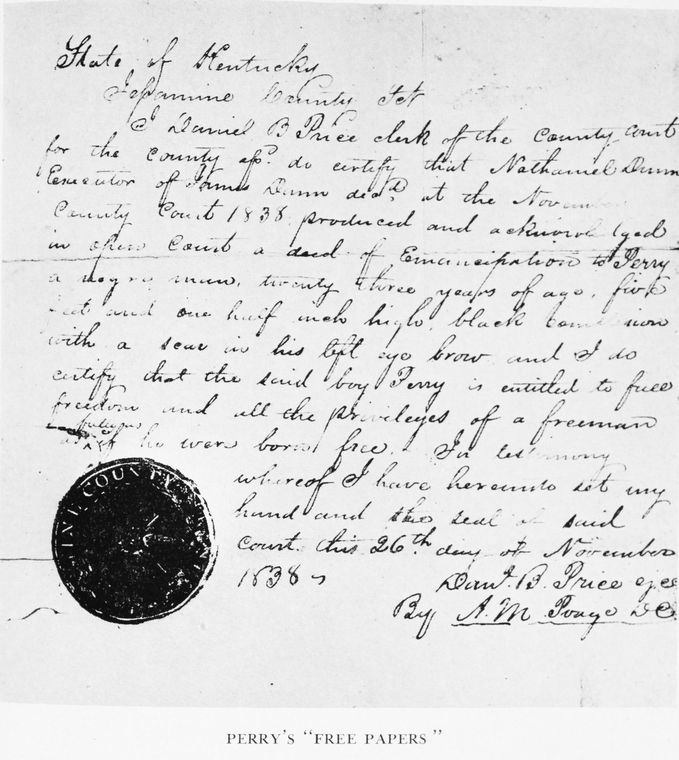 State of Kentucky
Jessamine County Sct
I Daniel B Price clerk of the County Court
for the county afsd. do certify that Nathaniel Dunn
Executor of James Dunn decd. at the November
County Court 1838 produced and acknowledged
in open Court a deed of Emancipation to Perry
a negro man, twenty three years of age, five
feet and one half inch high, black complexion
with a scar in his left eye brow and I do
certify that the said boy Perry is entitled to full
freedom and all the privileges of a freeman
as if he were born free. In testimony
whereof I have hereunto set my
hand and the seal of said
Court this 26th day of November
1838
Danl. B. Price
By A. M. Poage DC
INE COUNTY
PERRY'S "FREE PAPERS"